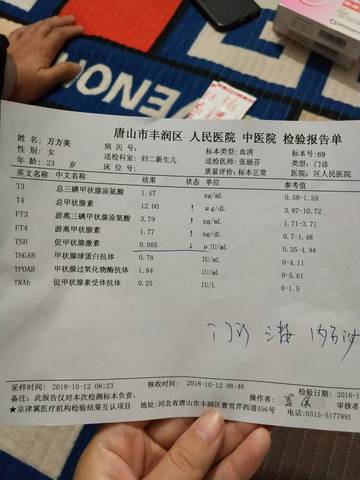 ENO
唐山市丰润区 人民医院 中医院 检验报告单
姓名：万方美 病历号： 标本类型：血清 标本号：69
性别：女 送检科室：妇二新生儿 送检医师：张丽芬 类型：门诊
年龄：23 岁 质量评价：标本正常 医院：区人民医院
英文名称 中文名称 结果 状态 单位 参考值
T3 总三碘甲状腺原氨酸 1.47 ng/mL 0.58-1.59
T4 总甲状腺素 12.00 ↑ μg/dL 3.87-10.72
FT3 游离三碘甲状腺原氨酸 3.79 ↑ pg/mL 1.71-3.71
FT4 游离甲状腺素 1.77 ↑ ng/mL 0.7-1.48
TSH 促甲状腺激素 0.005 ↓ μIU/mL 0.35-4.94
THGAB 甲状腺球蛋白抗体 0.78 IU/mL 0-4.11
TPOAB 甲状腺过氧化物酶抗体 1.84 IU/mL 0-5.61
TRAb 促甲状腺素受体抗体 0.25 IU/L 0-1.5
采样时间：2018-10-12 08:23 核收时间：2018-10-12 08:46 检验日期：2018-1
备注：此报告仅对本次检测标本负责。 操作者：
★京津冀医疗机构检验结果互认项目 地址：河北省唐山市丰润区曹雪芹西道456号 电话：0315-5177891